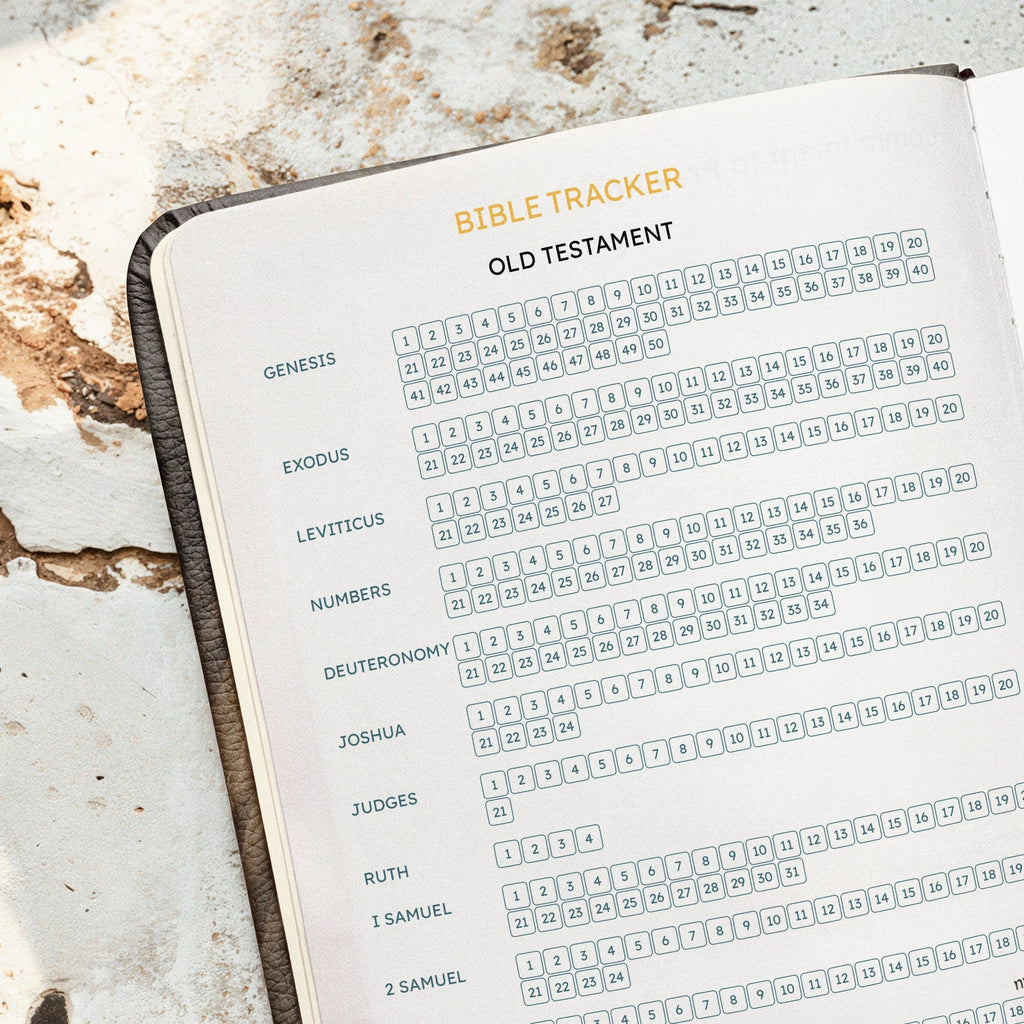 BIBLE TRACKER
OLD TESTAMENT
GENESIS
1 2 3 4 5 6 7 8 9 10 11 12 13 14 15 16 17 18 19 20
21 22 23 24 25 26 27 28 29 30 31 32 33 34 35 36 37 38 39 40
41 42 43 44 45 46 47 48 49 50
EXODUS
1 2 3 4 5 6 7 8 9 10 11 12 13 14 15 16 17 18 19 20
21 22 23 24 25 26 27 28 29 30 31 32 33 34 35 36 37 38 39 40
LEVITICUS
1 2 3 4 5 6 7 8 9 10 11 12 13 14 15 16 17 18 19 20
21 22 23 24 25 26 27
NUMBERS
1 2 3 4 5 6 7 8 9 10 11 12 13 14 15 16 17 18 19 20
21 22 23 24 25 26 27 28 29 30 31 32 33 34 35 36
DEUTERONOMY
1 2 3 4 5 6 7 8 9 10 11 12 13 14 15 16 17 18 19 20
21 22 23 24 25 26 27 28 29 30 31 32 33 34
JOSHUA
1 2 3 4 5 6 7 8 9 10 11 12 13 14 15 16 17 18 19 20
21 22 23 24
JUDGES
1 2 3 4 5 6 7 8 9 10 11 12 13 14 15 16 17 18 19 20
21
RUTH
1 2 3 4
I SAMUEL
1 2 3 4 5 6 7 8 9 10 11 12 13 14 15 16 17 18 19
21 22 23 24 25 26 27 28 29 30 31
2 SAMUEL
1 2 3 4 5 6 7 8 9 10 11 12 13 14 15 16 17 18 19
21 22 23 24
4 5 6 7 8 9 10 11 12 13 14 15 16 17 18